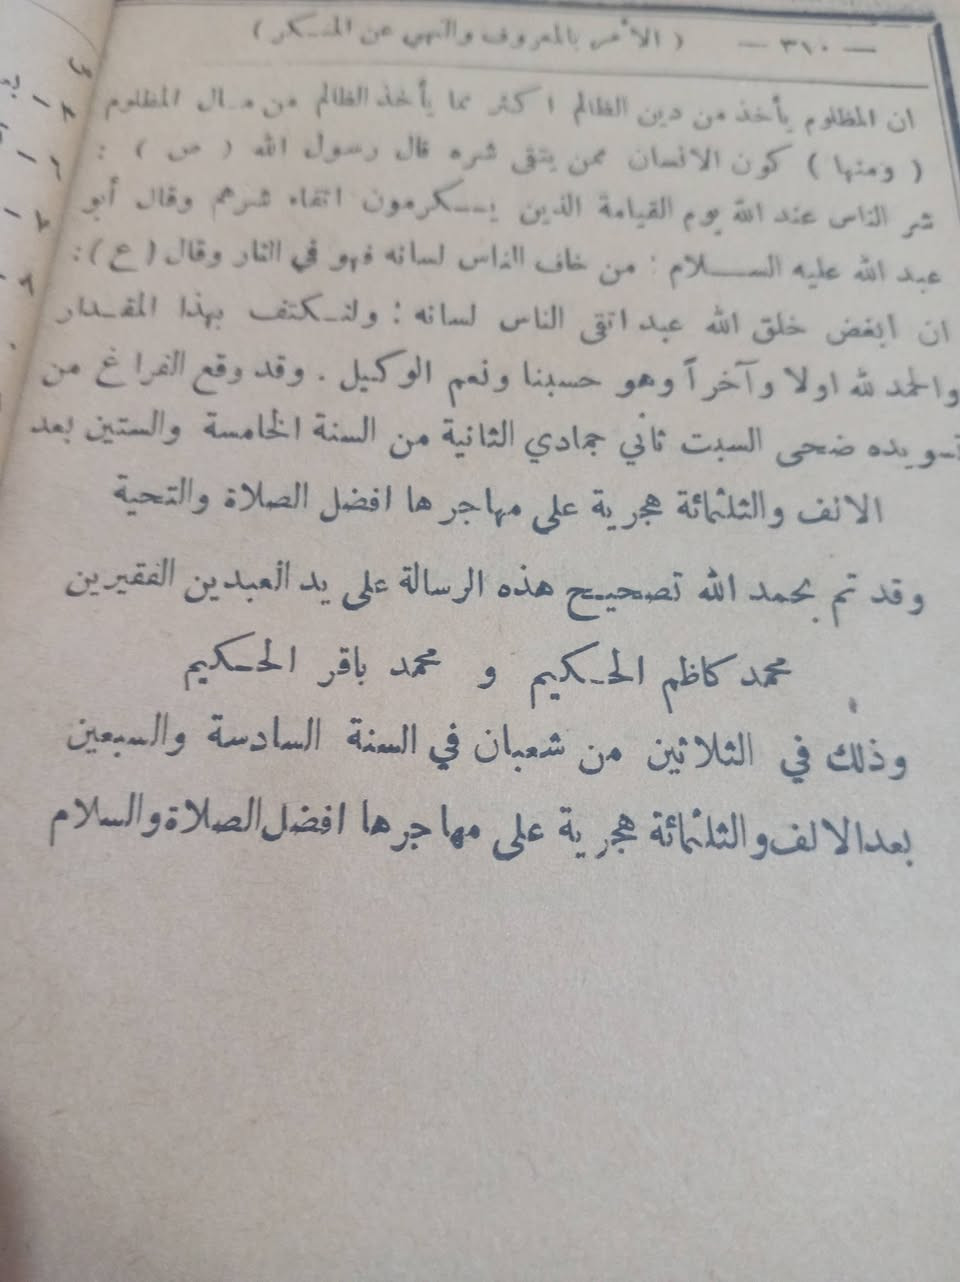 — ٣١٠ — ( الأمر بالمعروف والنهي عن المنكر )
ان المظلوم يأخذ من دين الظالم اكثر مما يأخذ الظالم من مال المظلوم
( ومنها ) كون الانسان ممن يتقى شره قال رسول الله ( ص ) :
شر الناس عند الله يوم القيامة الذين يكرمون اتقاء شرهم وقال أبو
عبد الله عليه السلام : من خاف الناس لسانه فهو في النار وقال ( ع ) :
ان ابغض خلق الله عبد اتقى الناس لسانه ؛ ولنكتف بهذا المقدار
والحمد لله اولا وآخراً وهو حسبنا ونعم الوكيل . وقد وقع الفراغ من
تسويده ضحى السبت ثاني جمادي الثانية من السنة الخامسة والستين بعد
الالف والثلثمائة هجرية على مهاجرها افضل الصلاة والتحية
وقد تم بحمد الله تصحيح هذه الرسالة على يد العبدين الفقيرين
محمد كاظم الحكيم و محمد باقر الحكيم
وذلك في الثلاثين من شعبان في السنة السادسة والسبعين
بعد الالف والثلثمائة هجرية على مهاجرها افضل الصلاة والسلام